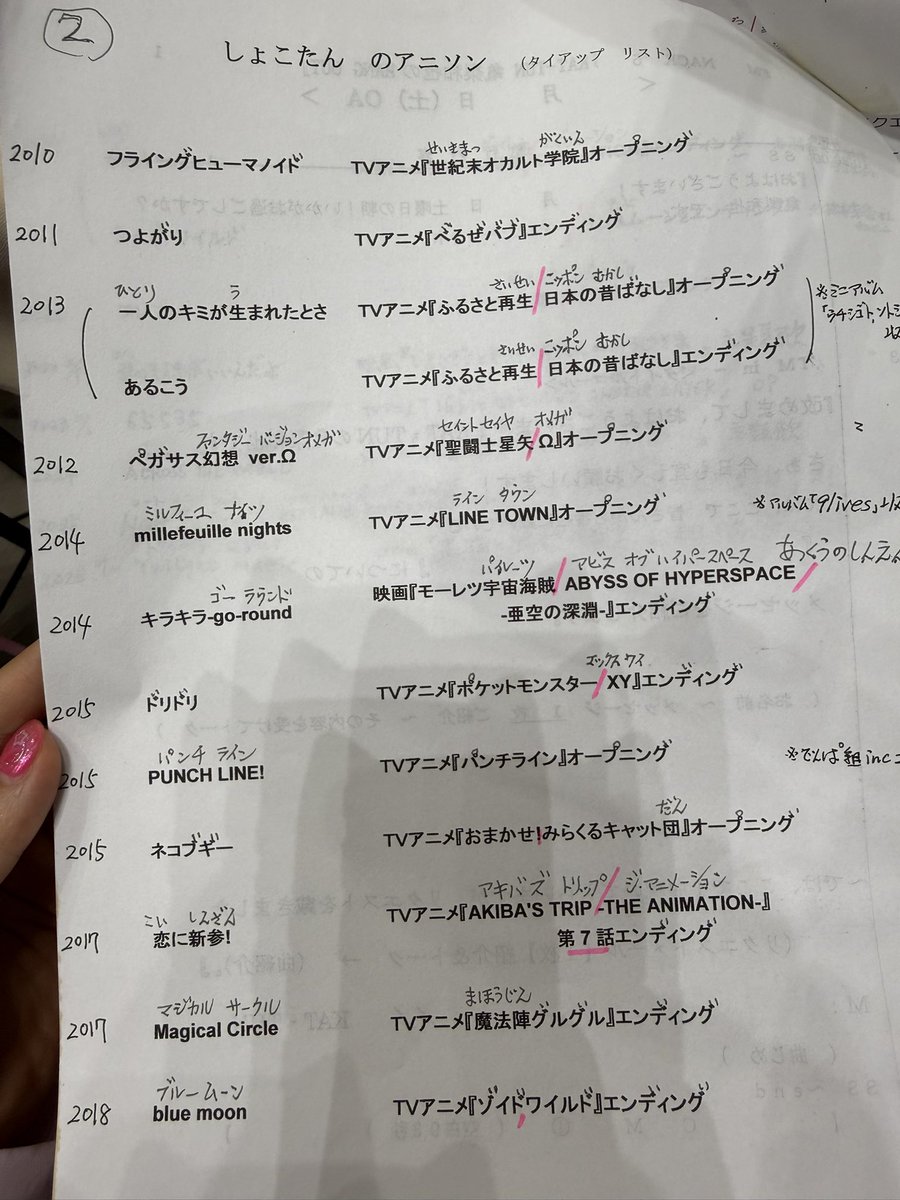 ②
しょこたん のアニソン （タイアップ リスト）
せいきまつ がくいん
2010 フライングヒューマノイド TVアニメ『世紀末オカルト学院』オープニング
2011 つよがり TVアニメ『べるぜバブ』エンディング
ひとり う さいせい / ニッポン むかし
2013 一人のキミが生まれたとさ TVアニメ『ふるさと再生 日本の昔ばなし』オープニング
※ミニアルバム
さいせい / ニッポン むかし
あるこう TVアニメ『ふるさと再生 日本の昔ばなし』エンディング
ファンタジー バージョンオメガ セイントセイヤ オメガ
2012 ペガサス幻想 ver.Ω TVアニメ『聖闘士星矢/Ω』オープニング
ミルフィーユ ナイツ ライン タウン
2014 millefeuille nights TVアニメ『LINE TOWN』オープニング ※アルバム「9lives」
パイレーツ / アビス オブ ハイパースペース あくうのしんえん
2014 キラキラ-go-round 映画『モーレツ宇宙海賊 ABYSS OF HYPERSPACE /
ゴー ラウンド
-亜空の深淵-』エンディング
エックスワイ
2015 ドリドリ TVアニメ『ポケットモンスター/XY』エンディング
パンチ ライン
2015 PUNCH LINE! TVアニメ『パンチライン』オープニング ※でんぱ組inc
だん
2015 ネコブギー TVアニメ『おまかせ!みらくるキャット団』オープニング
こい しんざん アキバズ トリップ / ジ・アニメーション
2017 恋に新参! TVアニメ『AKIBA'S TRIP -THE ANIMATION-』
第7話エンディング
マジカル サークル まほうじん
2017 Magical Circle TVアニメ『魔法陣グルグル』エンディング
ブルームーン
2018 blue moon TVアニメ『ゾイドワイルド』エンディング